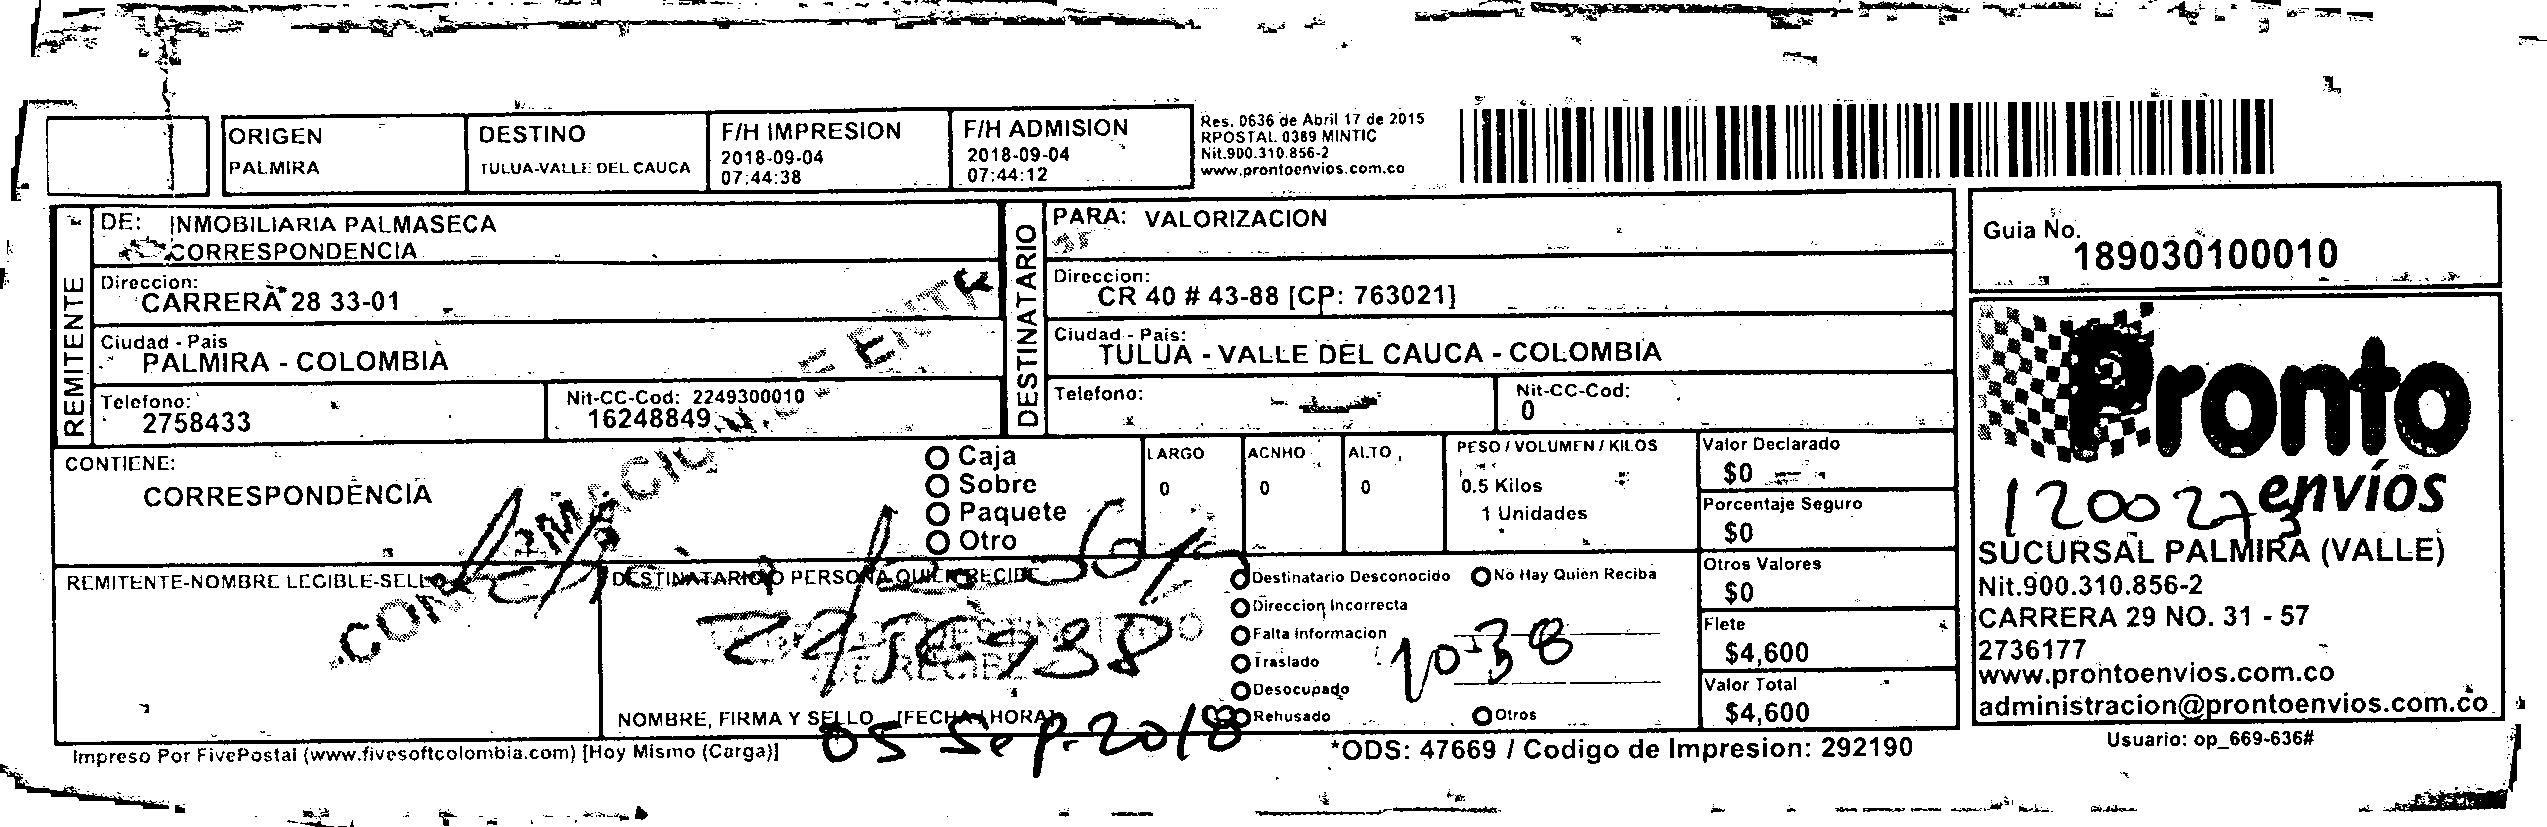 ORIGEN
PALMIRA
DESTINO
TULUA-VALLE DEL CAUCA
F/H IMPRESION
2018-09-04
07:44:38
F/H ADMISION
2018-09-04
07:44:12
Res. 0636 de Abril 17 de 2015
RPOSTAL 0389 MINTIC
Nit.900.310.856-2
www.prontoenvios.com.co
REMITENTE
DE: INMOBILIARIA PALMASECA
CORRESPONDENCIA
Direccion:
CARRERA 28 33-01
Ciudad - Pais
PALMIRA - COLOMBIA
Telefono:
2758433
Nit-CC-Cod: 2249300010
16248849
DESTINATARIO
PARA: VALORIZACION
Direccion:
CR 40 # 43-88 [CP: 763021]
Ciudad - Pais:
TULUA - VALLE DEL CAUCA - COLOMBIA
Telefono:
Nit-CC-Cod:
0
Guia No.
189030100010
CONTIENE:
CORRESPONDENCIA
Caja
Sobre
Paquete
Otro
LARGO
0
ACNHO
0
ALTO
0
PESO / VOLUMEN / KILOS
0.5 Kilos
1 Unidades
Valor Declarado
$0
Porcentaje Seguro
$0
Otros Valores
$0
Flete
$4,600
Valor Total
$4,600
REMITENTE-NOMBRE LEGIBLE-SELLO
DESTINATARIO O PERSONA QUIEN RECIBE
NOMBRE, FIRMA Y SELLO [FECHA HORA]
05 Sep. 2018
Destinatario Desconocido
No Hay Quien Reciba
Direccion Incorrecta
Falta Informacion
Traslado
Desocupado
Rehusado
Otros
10:38
Pronto
envíos
12002773
SUCURSAL PALMIRA (VALLE)
Nit.900.310.856-2
CARRERA 29 NO. 31 - 57
2736177
www.prontoenvios.com.co
administracion@prontoenvios.com.co
Impreso Por FivePostal (www.fivesoftcolombia.com) [Hoy Mismo (Carga)]
*ODS: 47669 / Codigo de Impresion: 292190
Usuario: op_669-636#